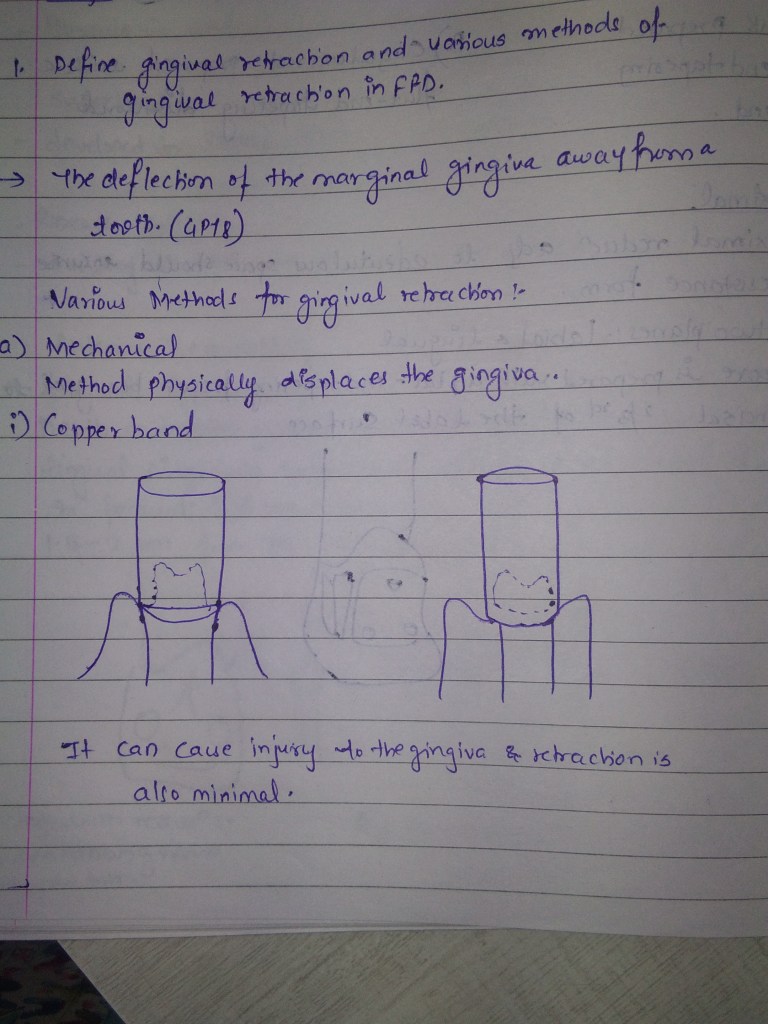 1. Define gingival retraction and various methods of
gingival retraction in FPD.
→ The deflection of the marginal gingiva away from a
tooth. (GPT8)
Various Methods for gingival retraction :-
a) Mechanical
Method physically displaces the gingiva..
i) Copper band
It can cause injury to the gingiva & retraction is
also minimal.